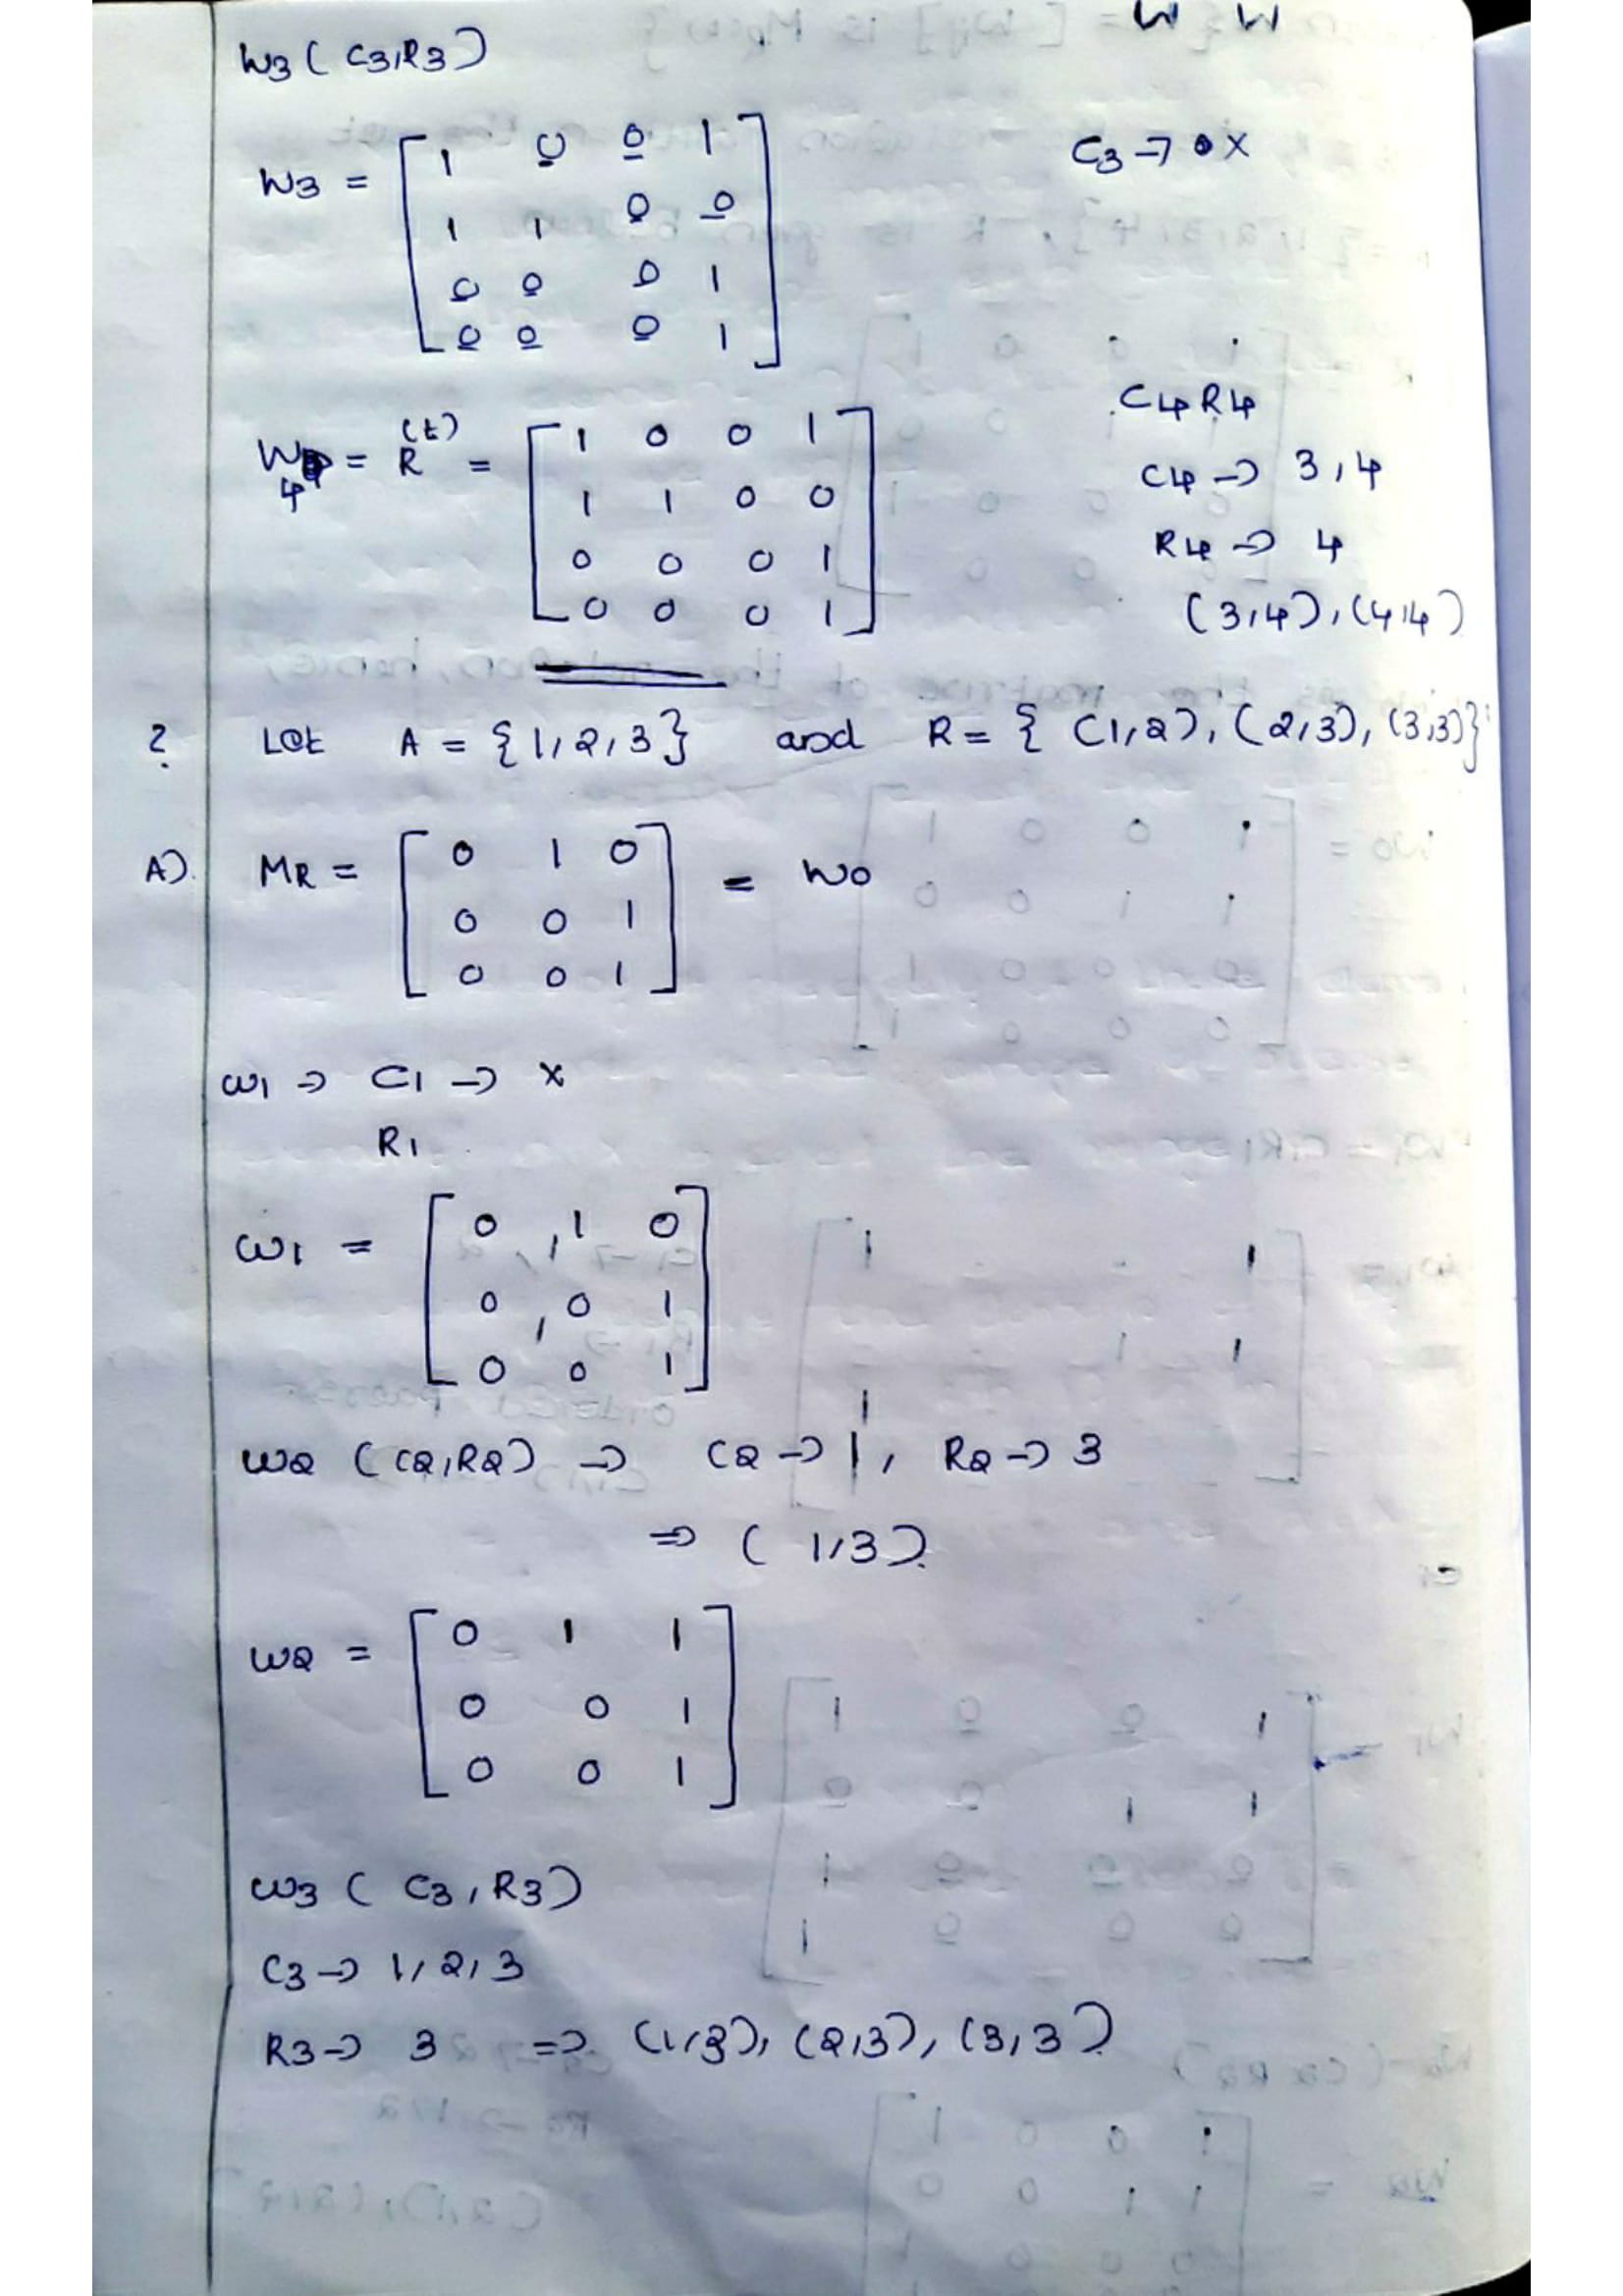 W3 ( C3,R3)
W3 = [ 1 0 0 1
1 1 0 0
0 0 0 1
0 0 0 1 ]
C3 → x
W4 = R(t) = [ 1 0 0 1
1 1 0 0
0 0 0 1
0 0 0 1 ]
C4 R4
C4 → 3,4
R4 → 4
(3,4), (4,4)
? Let A = {1,2,3} and R = { (1,2), (2,3), (3,3)}
A) MR = [ 0 1 0
0 0 1
0 0 1 ] = W0
W1 → C1 → x
R1
W1 = [ 0 1 0
0 0 1
0 0 1 ]
W2 (C2,R2) → C2 → 1, R2 → 3
⇒ ( 1,3)
W2 = [ 0 1 1
0 0 1
0 0 1 ]
W3 ( C3, R3)
C3 → 1,2,3
R3 → 3 ⇒ (1,3), (2,3), (3,3)